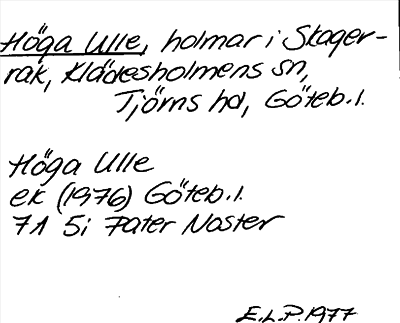 Höga Ulle, holmar i Skager-
rak, Klädesholmens sn,
Tjörns hd, Göteb. l.
Höga Ulle
ek (1976) Göteb. l.
7A 5i Pater Noster
E.L.P. 1977